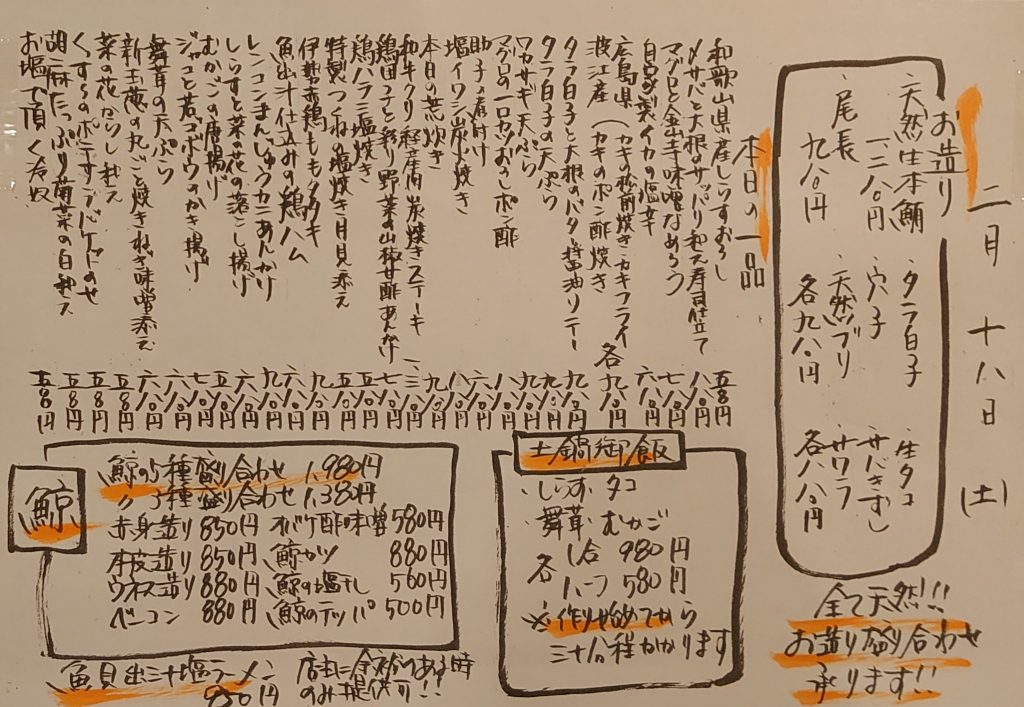 二月十八日(土)
お造り
・天然生本鮪
一二八〇円
・尾長
九八〇円
・タラ白子
・穴子
・天然ブリ
各九八〇円
・生タコ
・サバきずし
・サワラ
各八八〇円
全て天然!!
お造り盛り合わせ
承ります!!
本日の一品
和歌山県産しらすおろし 五八〇円
〆サバと大根のサッパリ和え寿司仕立て 八八〇円
マグロと金山寺味噌なめろう 七八〇円
自家製イカの塩辛 六八〇円
広島県(カキの松前焼き・カキフライ
産(カキのポン酢焼き 各九八〇円
タラ白子と大根のバター醤油ソテー 九八〇円
タラ白子の天ぷら 九八〇円
ワカサギ天ぷら
マグロの一口カツおろしポン酢
塩イワシ炭火焼き
本日の荒炊き
和牛クリ 経産肉 炭焼きステーキ
鶏団子と彩り野菜の山椒甘酢あんかけ
鶏ハラミ塩焼き
特製つくねの塩焼き月見添え
伊勢赤鶏ももタタキ
魚出汁仕込みの鶏ハム
レンコンまんじゅうカニあんかけ
しらすと菜の花の落とし揚げ
むかごの唐揚げ
ジャコと葱ゴボウのかき揚げ
舞茸の天ぷら
新玉葱の丸ごと焼きねぎ味噌添え
菜の花からし和え
くずきのポテサラバケットのせ
胡麻たっぷり菊菜の白和え
お塩で頂く冷奴 五八〇円
土鍋御飯
・しらす・タコ
・舞茸・むかご
各 1合 980円
ハーフ 580円
※作り始めてから
三十分程かかります
鯨
鯨の5種盛り合わせ 1,980円
〃 3種盛り合わせ 1,380円
赤身造り 850円
本皮造り 850円
ウネス造り 880円
ベーコン 880円
オバケ酢味噌 580円
鯨カツ 880円
鯨の塩干し 560円
鯨のテッパ 500円
魚貝出汁塩ラーメン
950円
店主に余裕がある時
のみ提供可!!